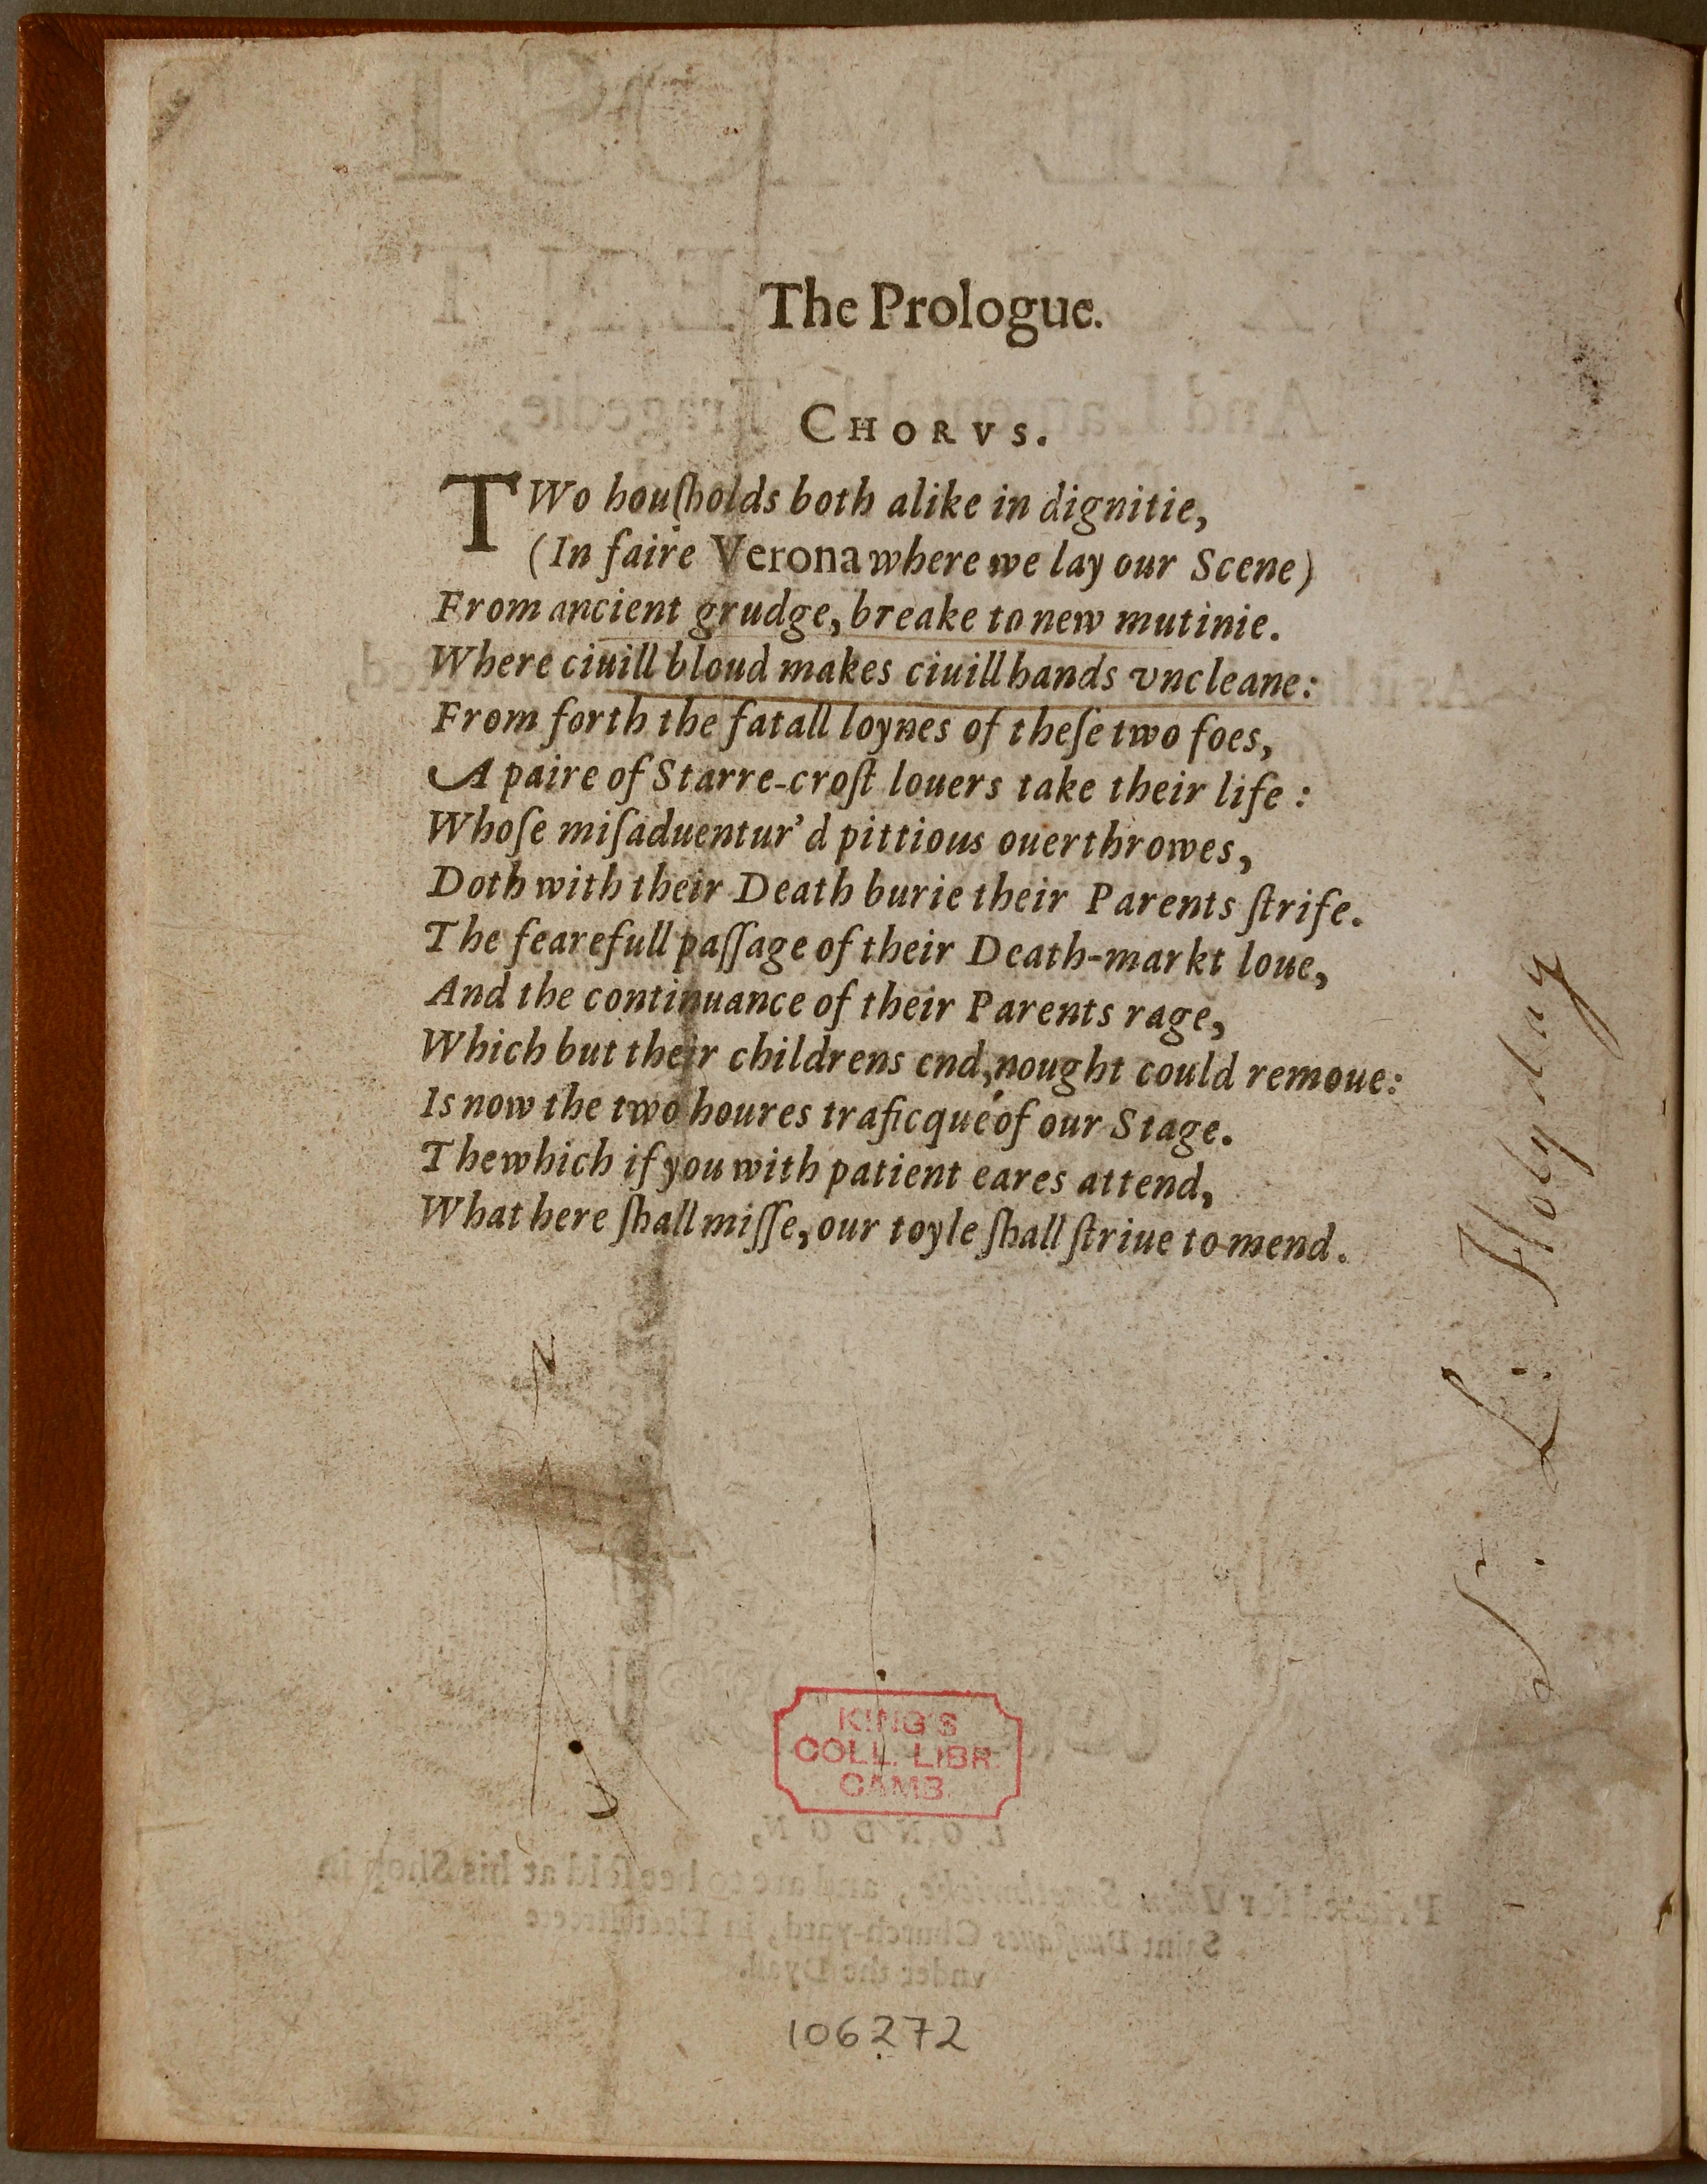 The Prologue.
CHORVS.
TWo houſholds both alike in dignitie,
(In faire Verona where we lay our Scene)
From ancient grudge, breake to new mutinie.
Where ciuill bloud makes ciuill hands vncleane:
From forth the fatall loynes of theſe two foes,
A paire of Starre-croſt louers take their life :
Whoſe miſaduentur'd pittious ouerthrowes,
Doth with their Death burie their Parents ſtrife.
The fearefull paſſage of their Death-markt loue,
And the continuance of their Parents rage,
Which but their childrens end, nought could remoue:
Is now the two houres traficque of our Stage.
The which if you with patient eares attend,
What here ſhall miſſe, our toyle ſhall ſtriue to mend.
Holyday
KING'S
COLL. LIBR.
CAMB.
LONDON,
Printed for Iohn Smethwicke, and are to bee ſold at his Shop in
Saint Dunſtanes Church-yard, in Fleetestreete
vnder the Dyall.
106272